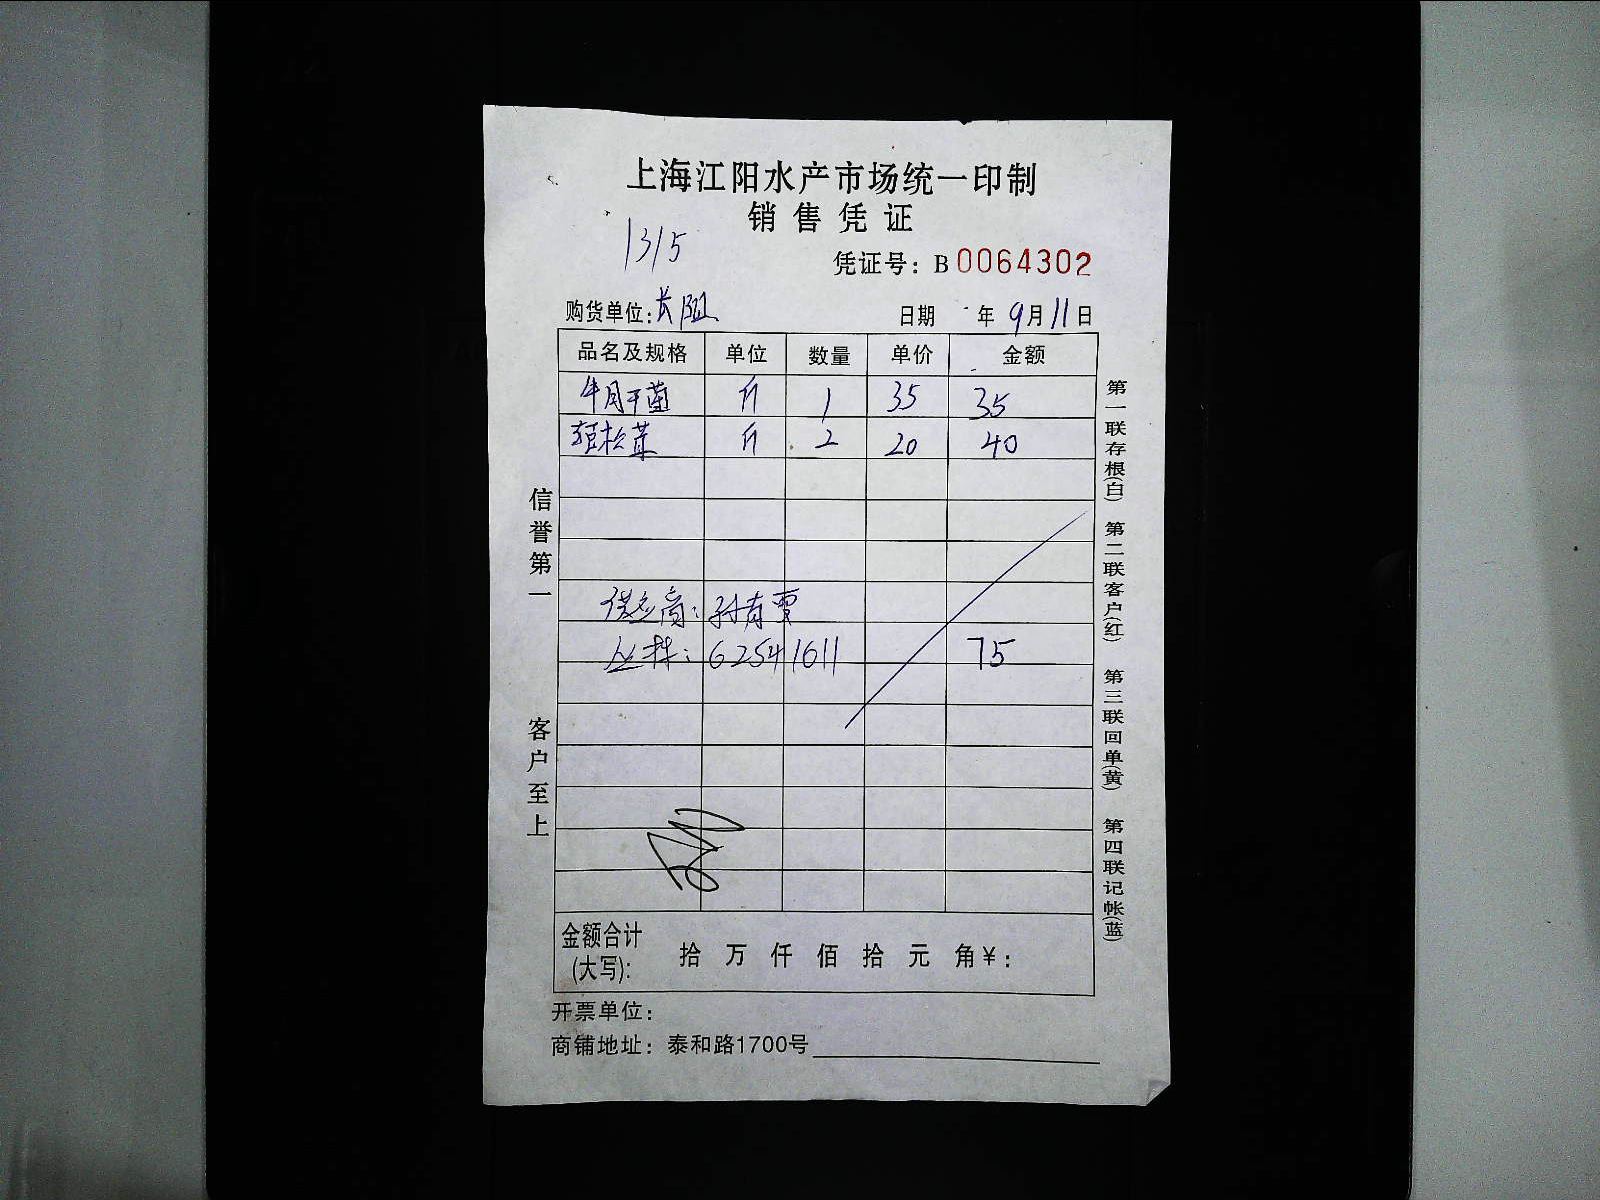 上海江阳水产市场统一印制
销售凭证
1315
凭证号：B 0064302
购货单位：长阳 日期 年 9月11日
品名及规格 单位 数量 单价 金额
牛肝菌 斤 1 35 35
松茸 斤 2 20 40
供应商：孙有
6254 1611 75
金额合计(大写)： 拾 万 仟 佰 拾 元 角 ¥：
开票单位：
商铺地址：泰和路1700号
信誉第一 客户至上
第一联存根(白) 第二联客户(红) 第三联回单(黄) 第四联记帐(蓝)